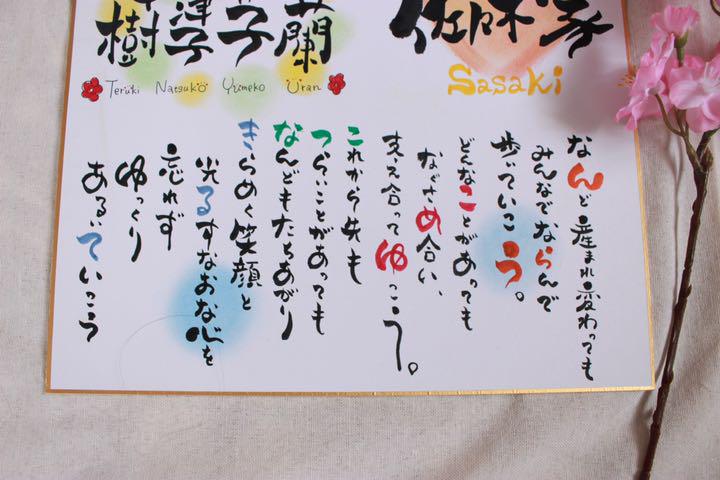 樹 津子 子 蘭
佐々木家
Teruki Natsuko Yumeko Uran
Sasaki
なんど産まれ変わっても
みんなでならんで
歩いていこう。
どんなことがあっても
なぐさめ合い、
支え合ってゆこう。
これから先も
つらいことがあっても
なんどもたちあがり
きらめく笑顔と
光るすなおな心を
忘れず
ゆっくり
あるいていこう